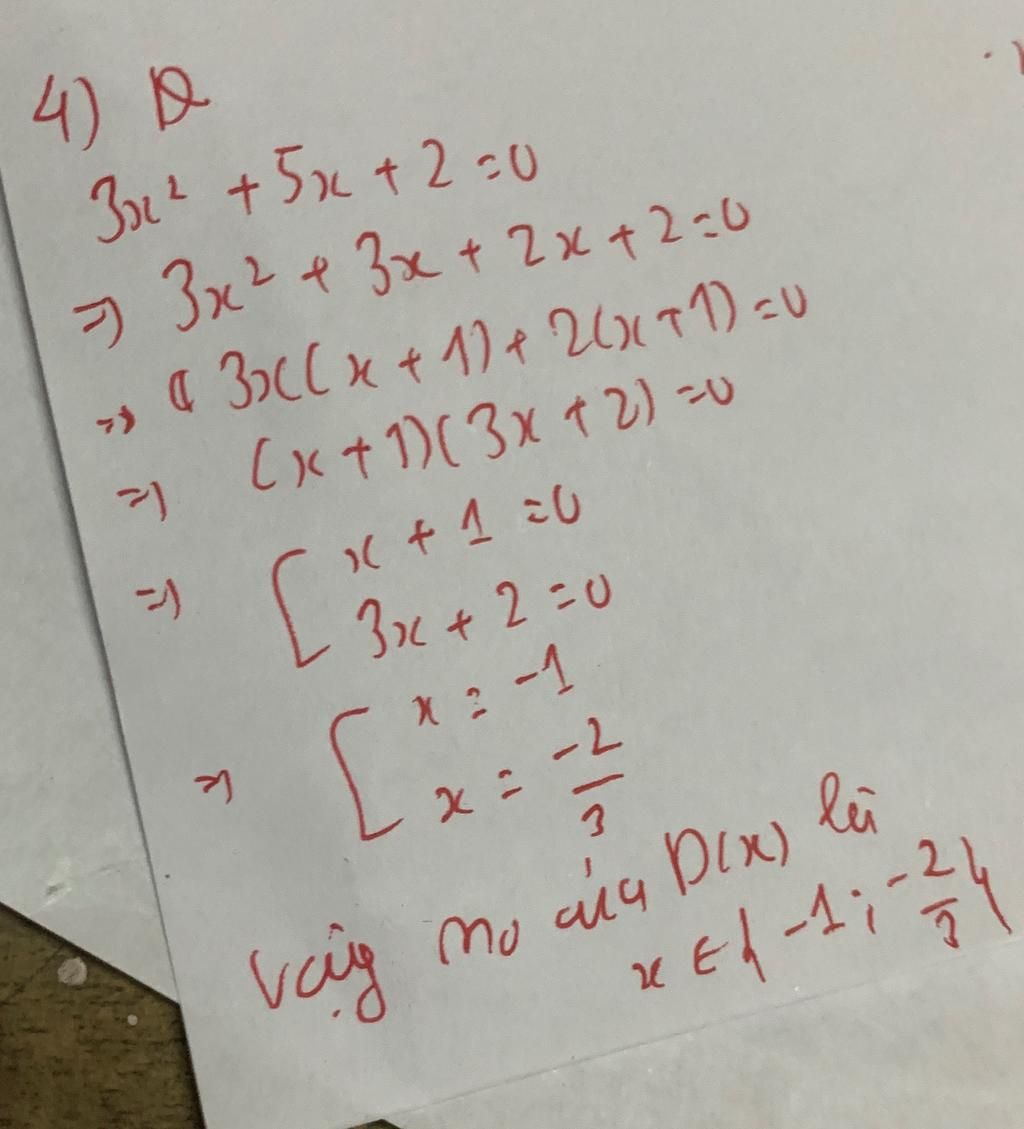 4) D
3x² + 5x + 2 = 0
=> 3x² + 3x + 2x + 2 = 0
=> 3x(x + 1) + 2(x + 1) = 0
=> (x + 1)(3x + 2) = 0
=> [ x + 1 = 0
3x + 2 = 0
=> [ x = -1
x = -2/3
Vậy no của D(x) là
x ∈ { -1 ; -2/3 }